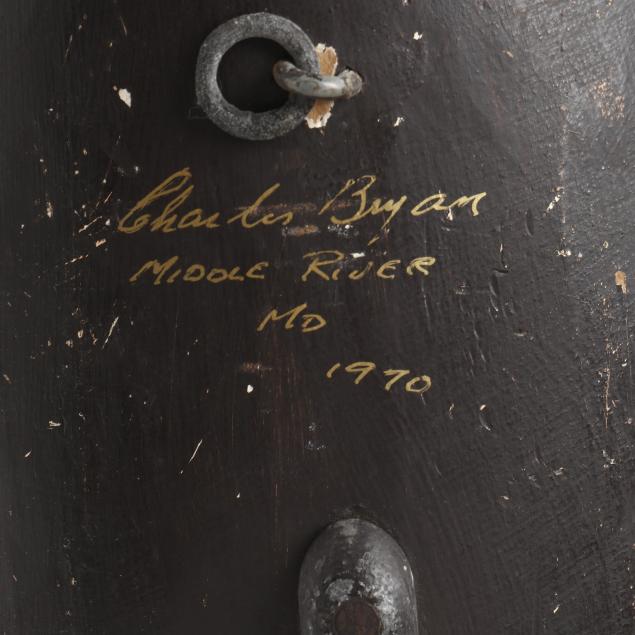 Charles Bryan
MIDDLE RIVER
MD
1970